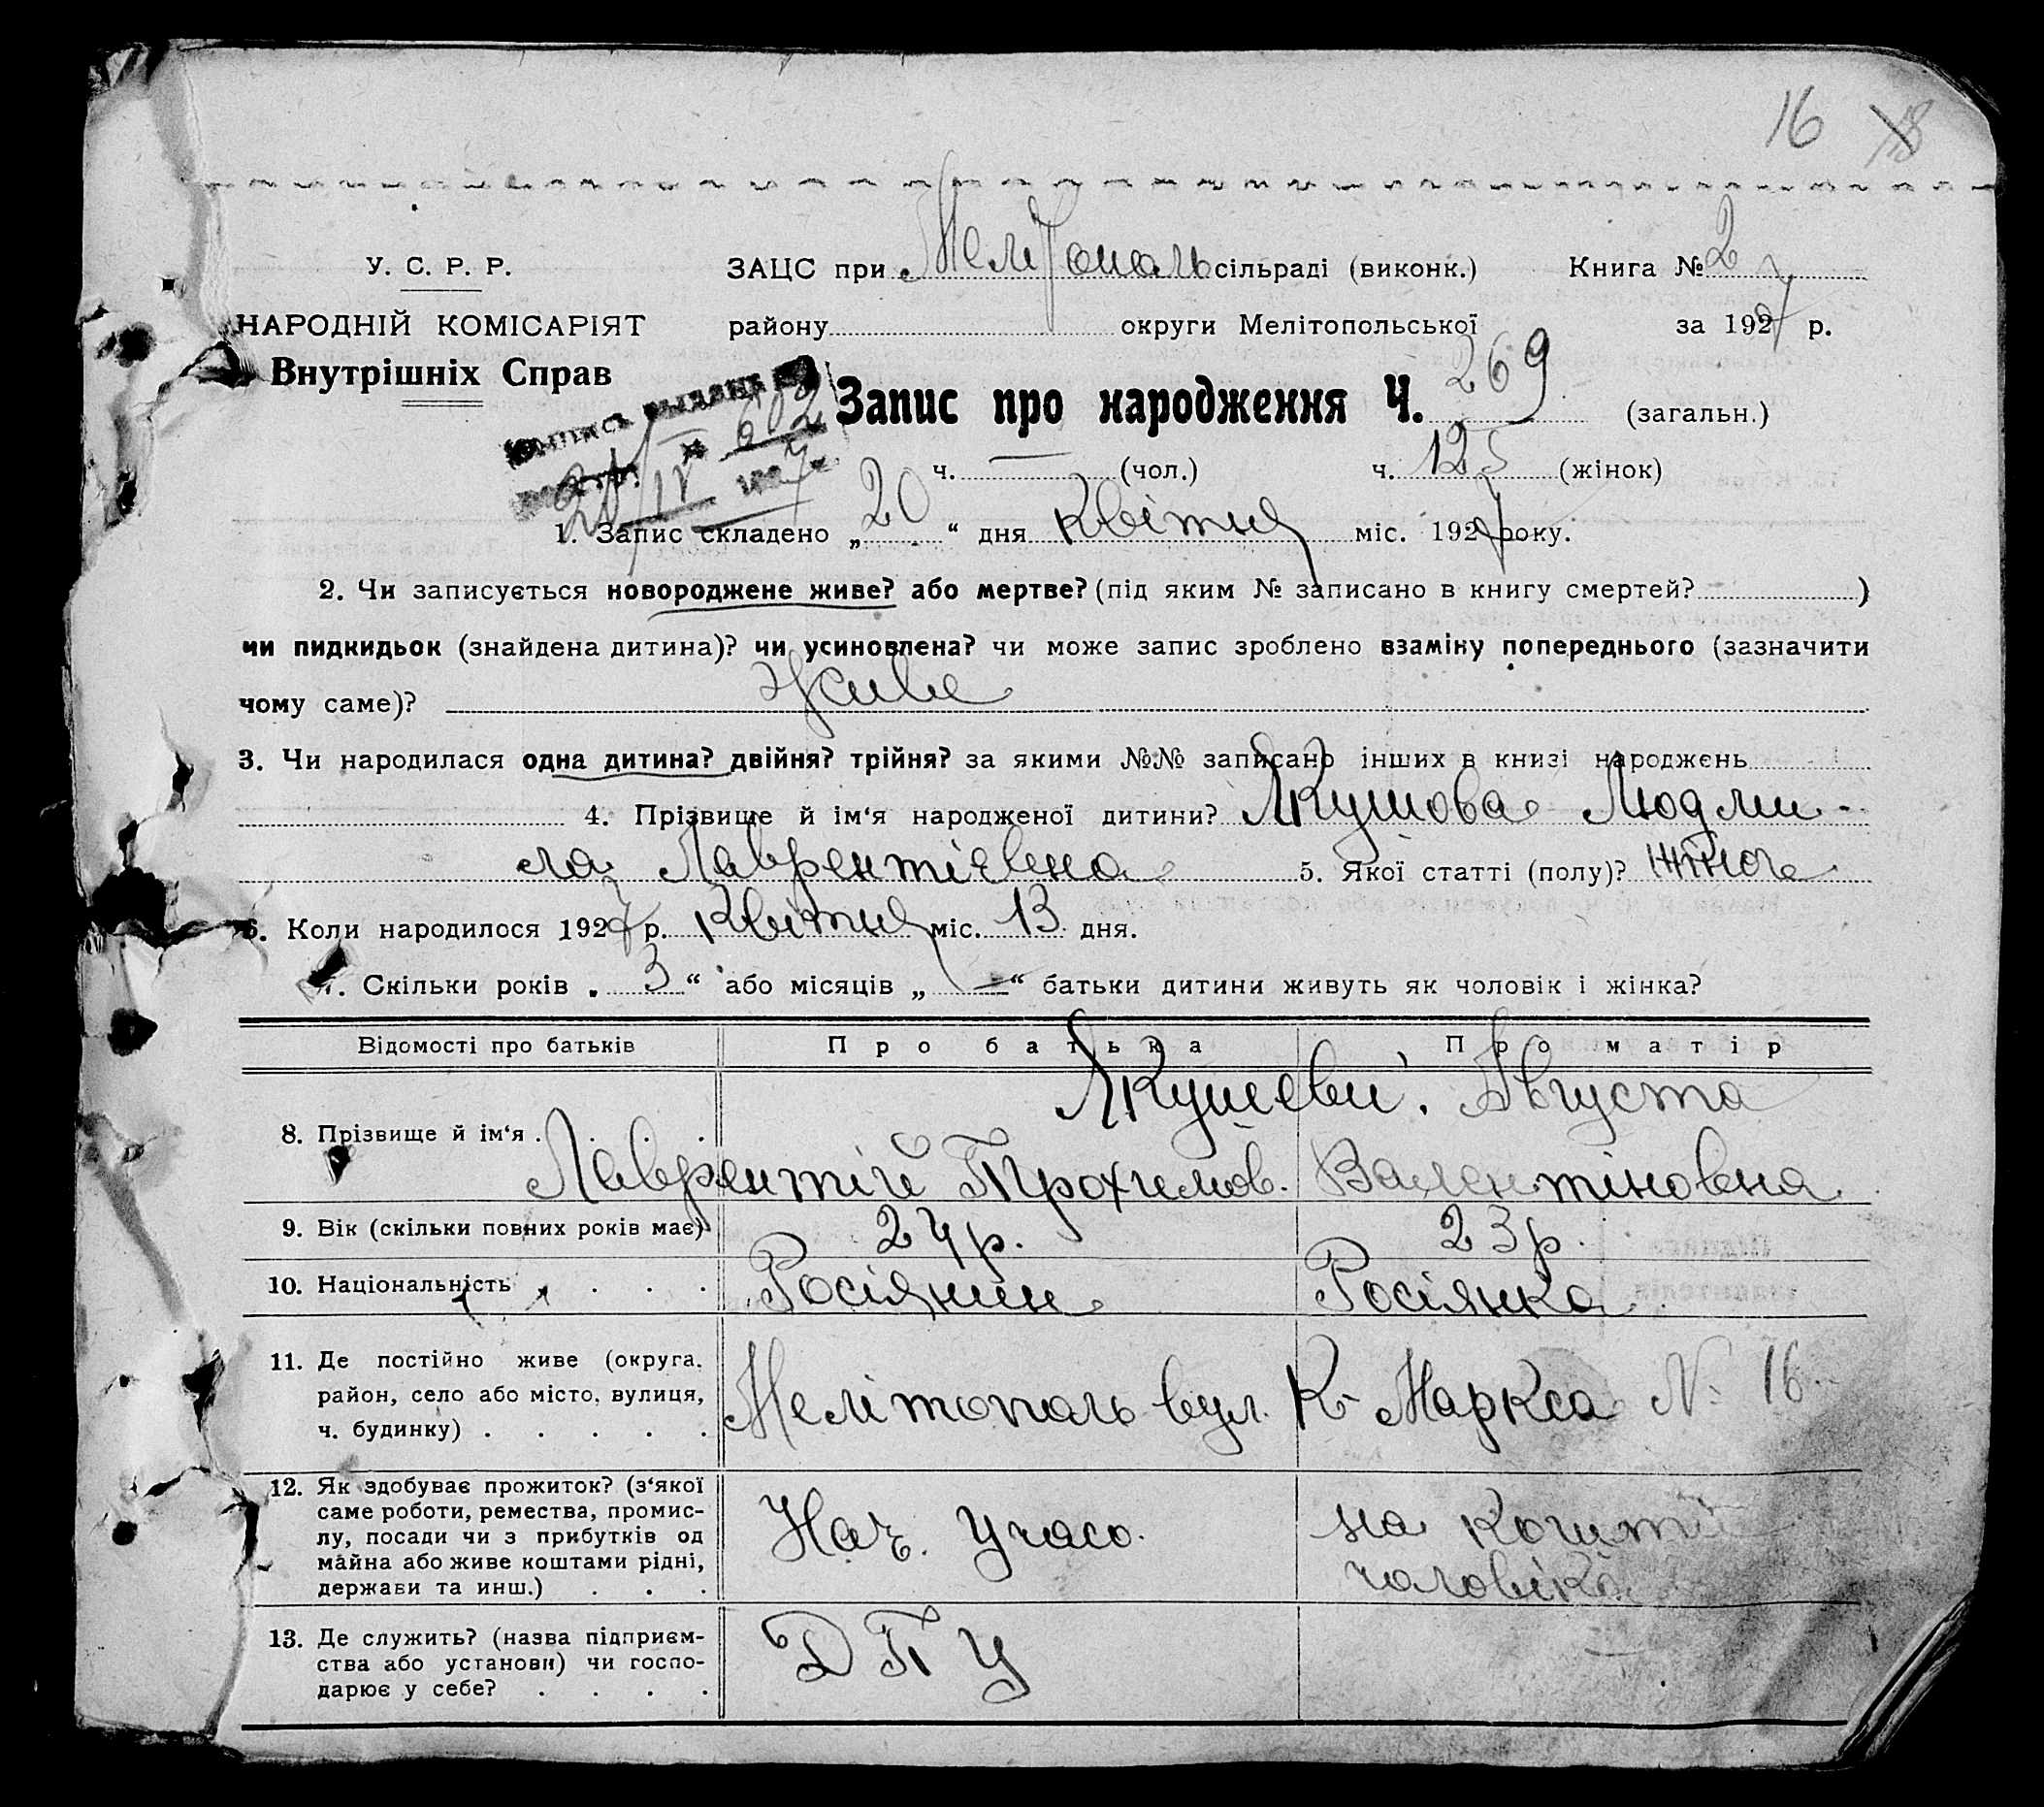 16 18
У. С. Р. Р. ЗАЦС при Мелітополь сільраді (виконк.) Книга № 2
НАРОДНІЙ КОМІСАРІЯТ району округи Мелітопольської за 1927 р.
Внутрішніх Справ
Запис про народження Ч. 269 (загальн.)
выдана
№ 602
ч. — (чол.) ч. 125 (жінок)
20/IV 1927
1. Запис складено „ 20 “ дня Квітня міс. 1927 року.
2. Чи записується новороджене живе? або мертве? (під яким № записано в книгу смертей? )
чи пидкидьок (знайдена дитина)? чи усиновлена? чи може запис зроблено взаміну попереднього (зазначити
чому саме)? Живе
3. Чи народилася одна дитина? двійня? трійня? за якими №№ записано інших в книзі народжень
4. Прізвище й ім‘я народженої дитини? Якушова Людми-
ла Лаврентієвна 5. Якої статті (полу)? Жіноче
6. Коли народилося 1927 р. Квітня міс. 13 дня.
7. Скільки років „ 3 “ або місяців „ — “ батьки дитини живуть як чоловік і жінка?
Відомості про батьків Про батька Про матір
Якушеви. Августа
8. Прізвище й ім‘я . Лаврентій Трохимов. Валентіновна
9. Вік (скільки повних років має) 24 р. 23 р.
10. Національність . . . . Росіянин Росіянка
11. Де постійно живе (округа,
район, село або місто, вулиця, Мелітополь вул. К-Маркса № 16
ч. будинку) . . . . .
12. Як здобуває прожиток? (з‘якої
саме роботи, ремества, промис-
лу, посади чи з прибутків од Нач. Участ. на кошти
майна або живе коштами рідні, чоловіка
держави та инш.) . . .
13. Де служить? (назва підприєм-
ства або установи) чи госпо- ДПУ
дарює у себе? . . . .